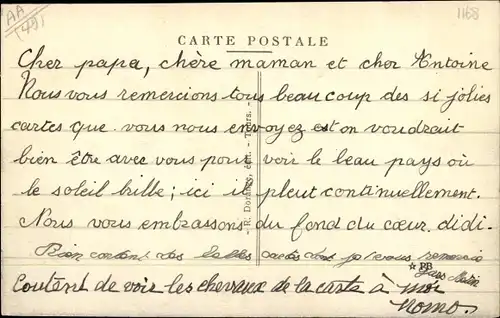 AA
(49)
1168
CARTE POSTALE
Cher papa, chère maman et cher Antoine
Nous vous remercions tous beaucoup des si jolies
cartes que vous nous envoyez est on voudrait
bien être avec vous pour voir le beau pays où
le soleil brille; ici il pleut continuellement.
Nous vous embrassons du fond du cœur. didi.
Bien content des belles cartes dont je vous remercie
BB
Contént de voir les chevaux de la carte à moi
Momo.
R. Dorange, édit. - Tours.